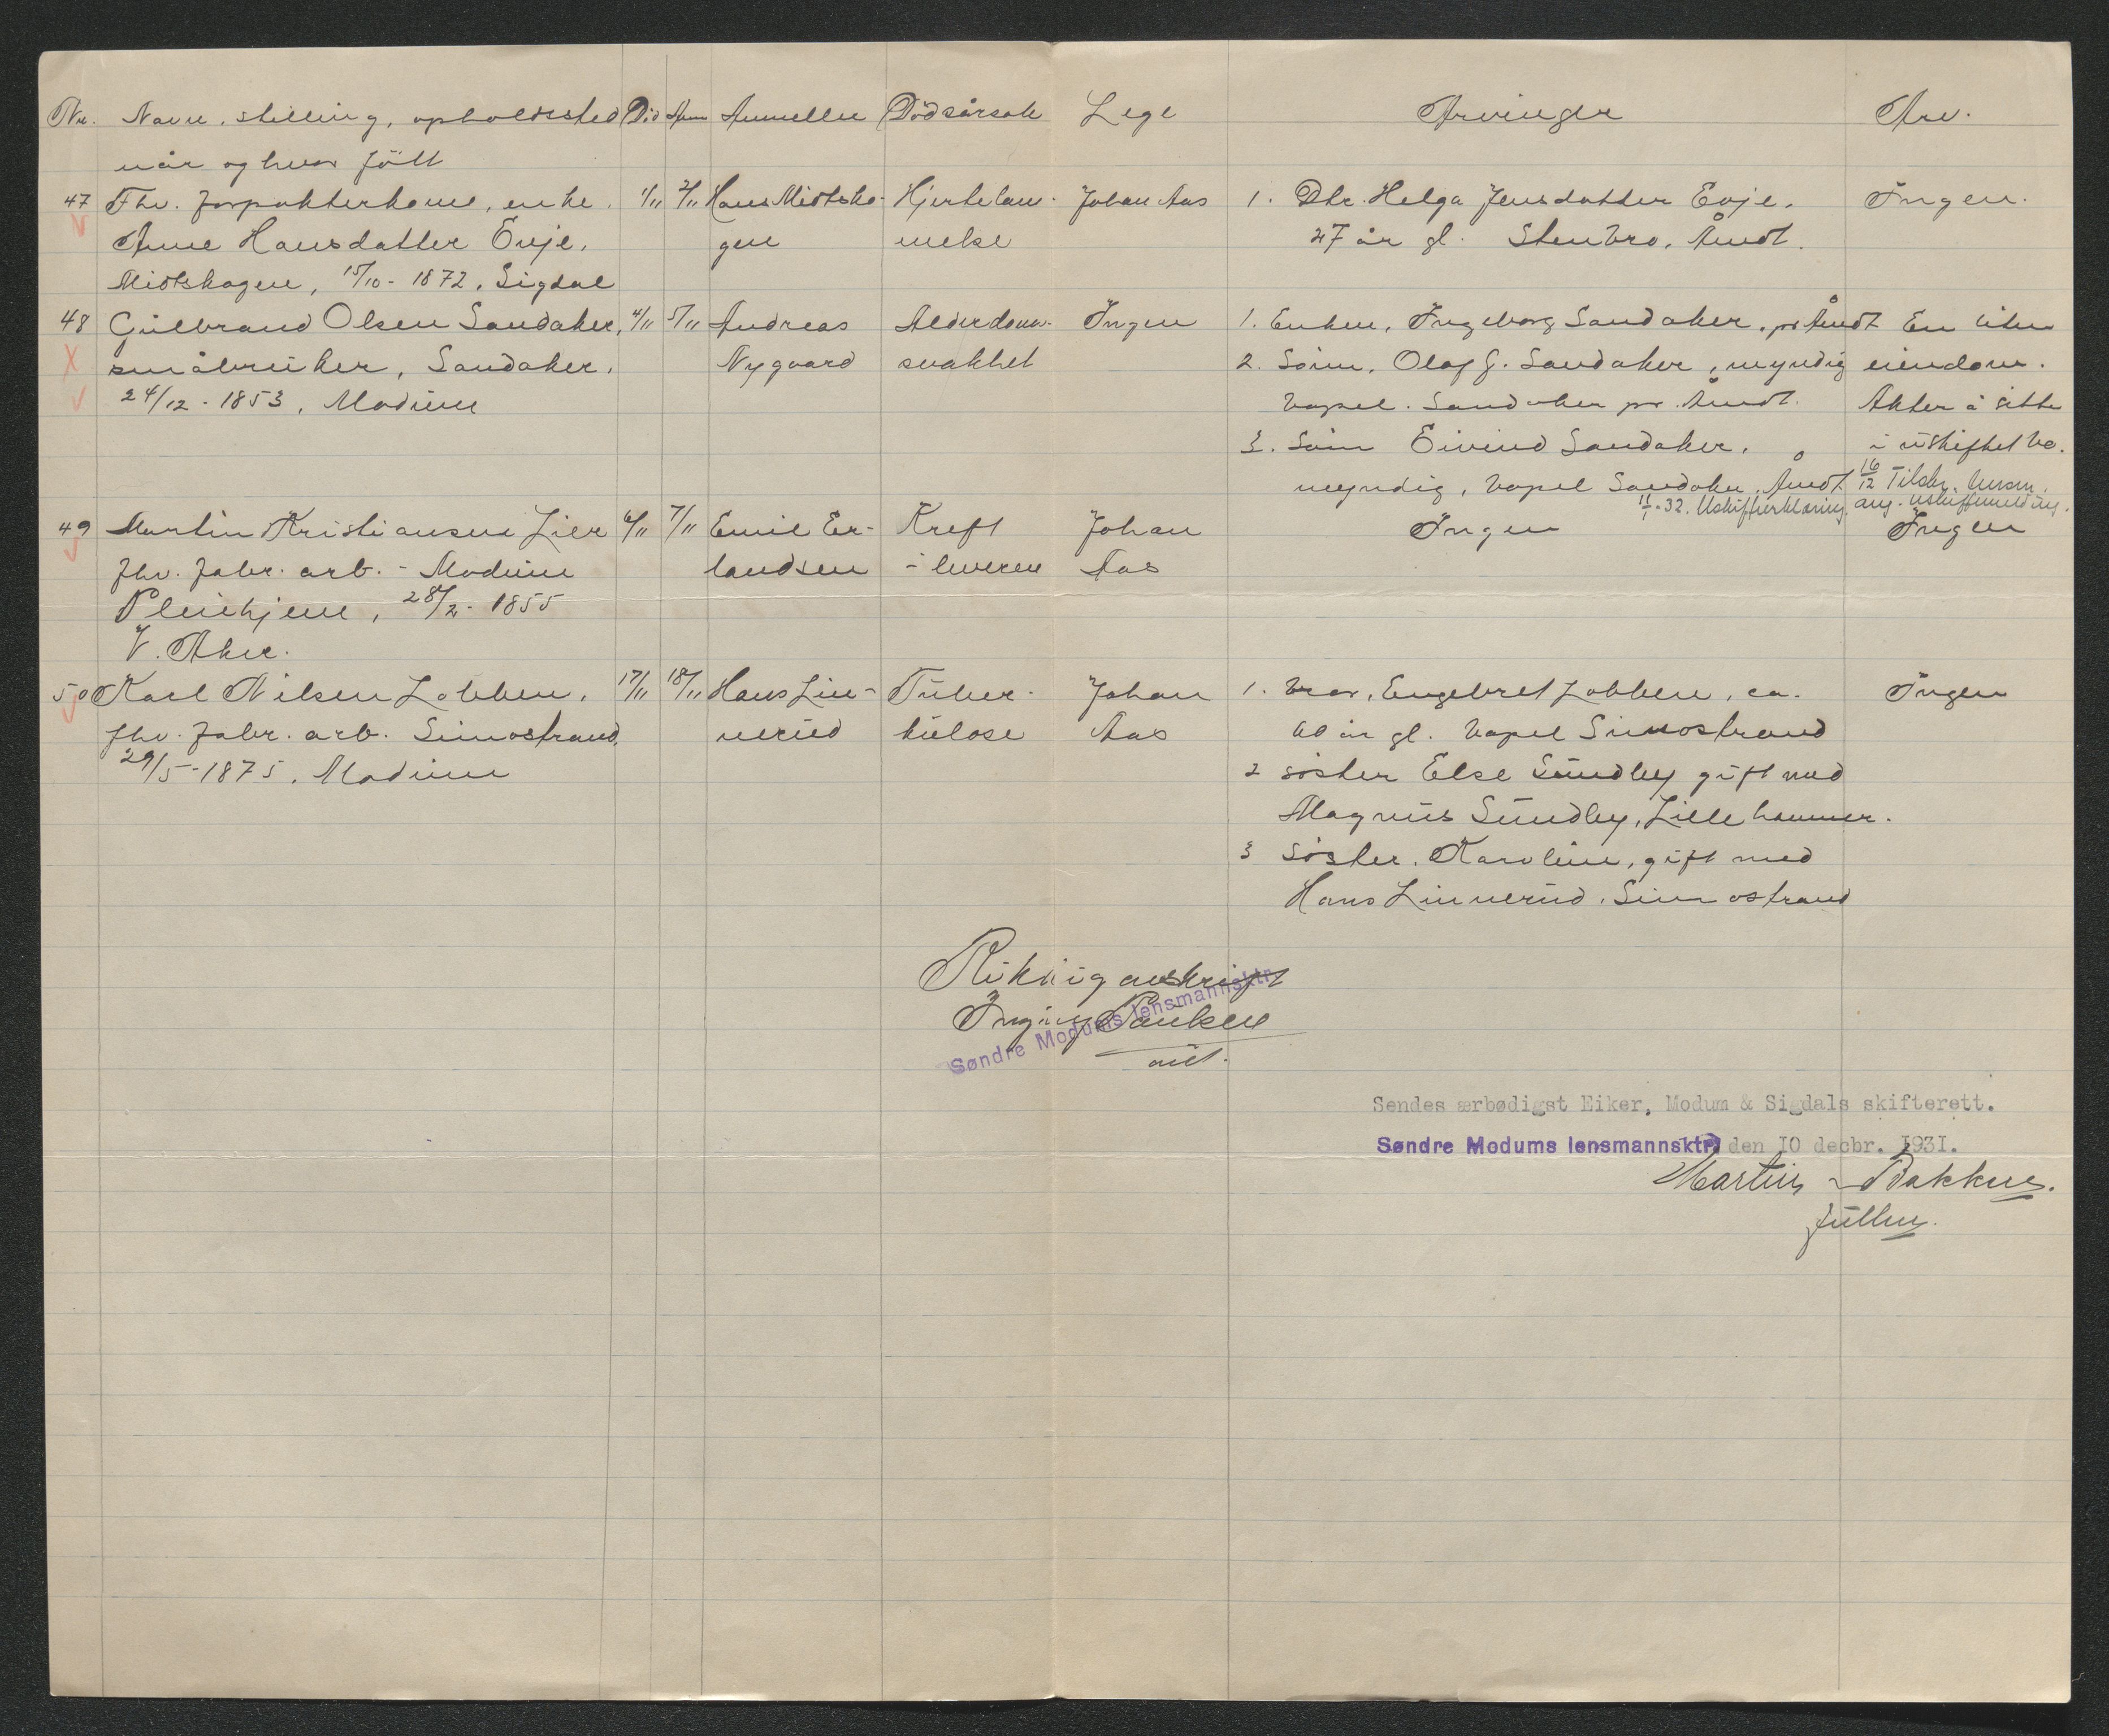 Nr. Navn, stilling, opholdssted Död Anm Anmelder Dödsårsak Lege Arvinger Arv.
når og hvor född
47 Fhv. forpakterkone, enke. 1/11 2/11 Hans Midtsko- Hjertelam- Johan Aas 1. Dtr. Helga Jensdatter Evje. Ingen.
Anne Hansdatter Evje. gen melse 27 år gl. Stenbro, Åmot.
Midtskogen, 15/10-1872, Sigdal
48 Gulbrand Olsen Sandaker, 4/11 5/11 Andreas Alderdoms- Ingen 1. Enken, Ingeborg Sandaker, pr Åmot En liten
småbruker, Sandaker. Nygaard svakhet 2. Sönn, Olaf G. Sandaker, myndig eiendom.
24/12-1853, Modum bopel. Sandaker pr. Åmot. Akter å sitte
3. Sönn Eivind Sandaker. i uskiftet bo.
myndig, bopel Sandaker, Åmot. 16/12 Tilskr. lensm.
11/1-32. Uskifteerklæring. ang. uskiftemelding.
49 Martin Kristiansen Lier 6/11 7/11 Emil Er- Kreft Johan Ingen Ingen
fhv. fabr. arb. - Modum landsen i leveren Aas
Pleiehjem, 28/2-1855
V. Aker.
50 Karl Nilsen Lobben, 17/11 18/11 Hans Lin- Tuber- Johan 1. bror, Engebret Lobben, ca. Ingen
fhv. fabr. arb. Simostrand, nerud kulose Aas 60 år gl. bopel Simostrand
29/5-1875, Modum 2 söster Else Sundby gift med
Magnus Sundby, Lillehammer.
3 söster. Karoline, gift med
Hans Linnerud. Simostrand
Riktig avskrift
Søndre Modums lensmannsktr.
aut.
Sendes ærbødigst Eiker, Modum & Sigdals skifterett.
Søndre Modums lensmannsktr. den 10 decbr. 1931.
Martin Bakken.
fullm.